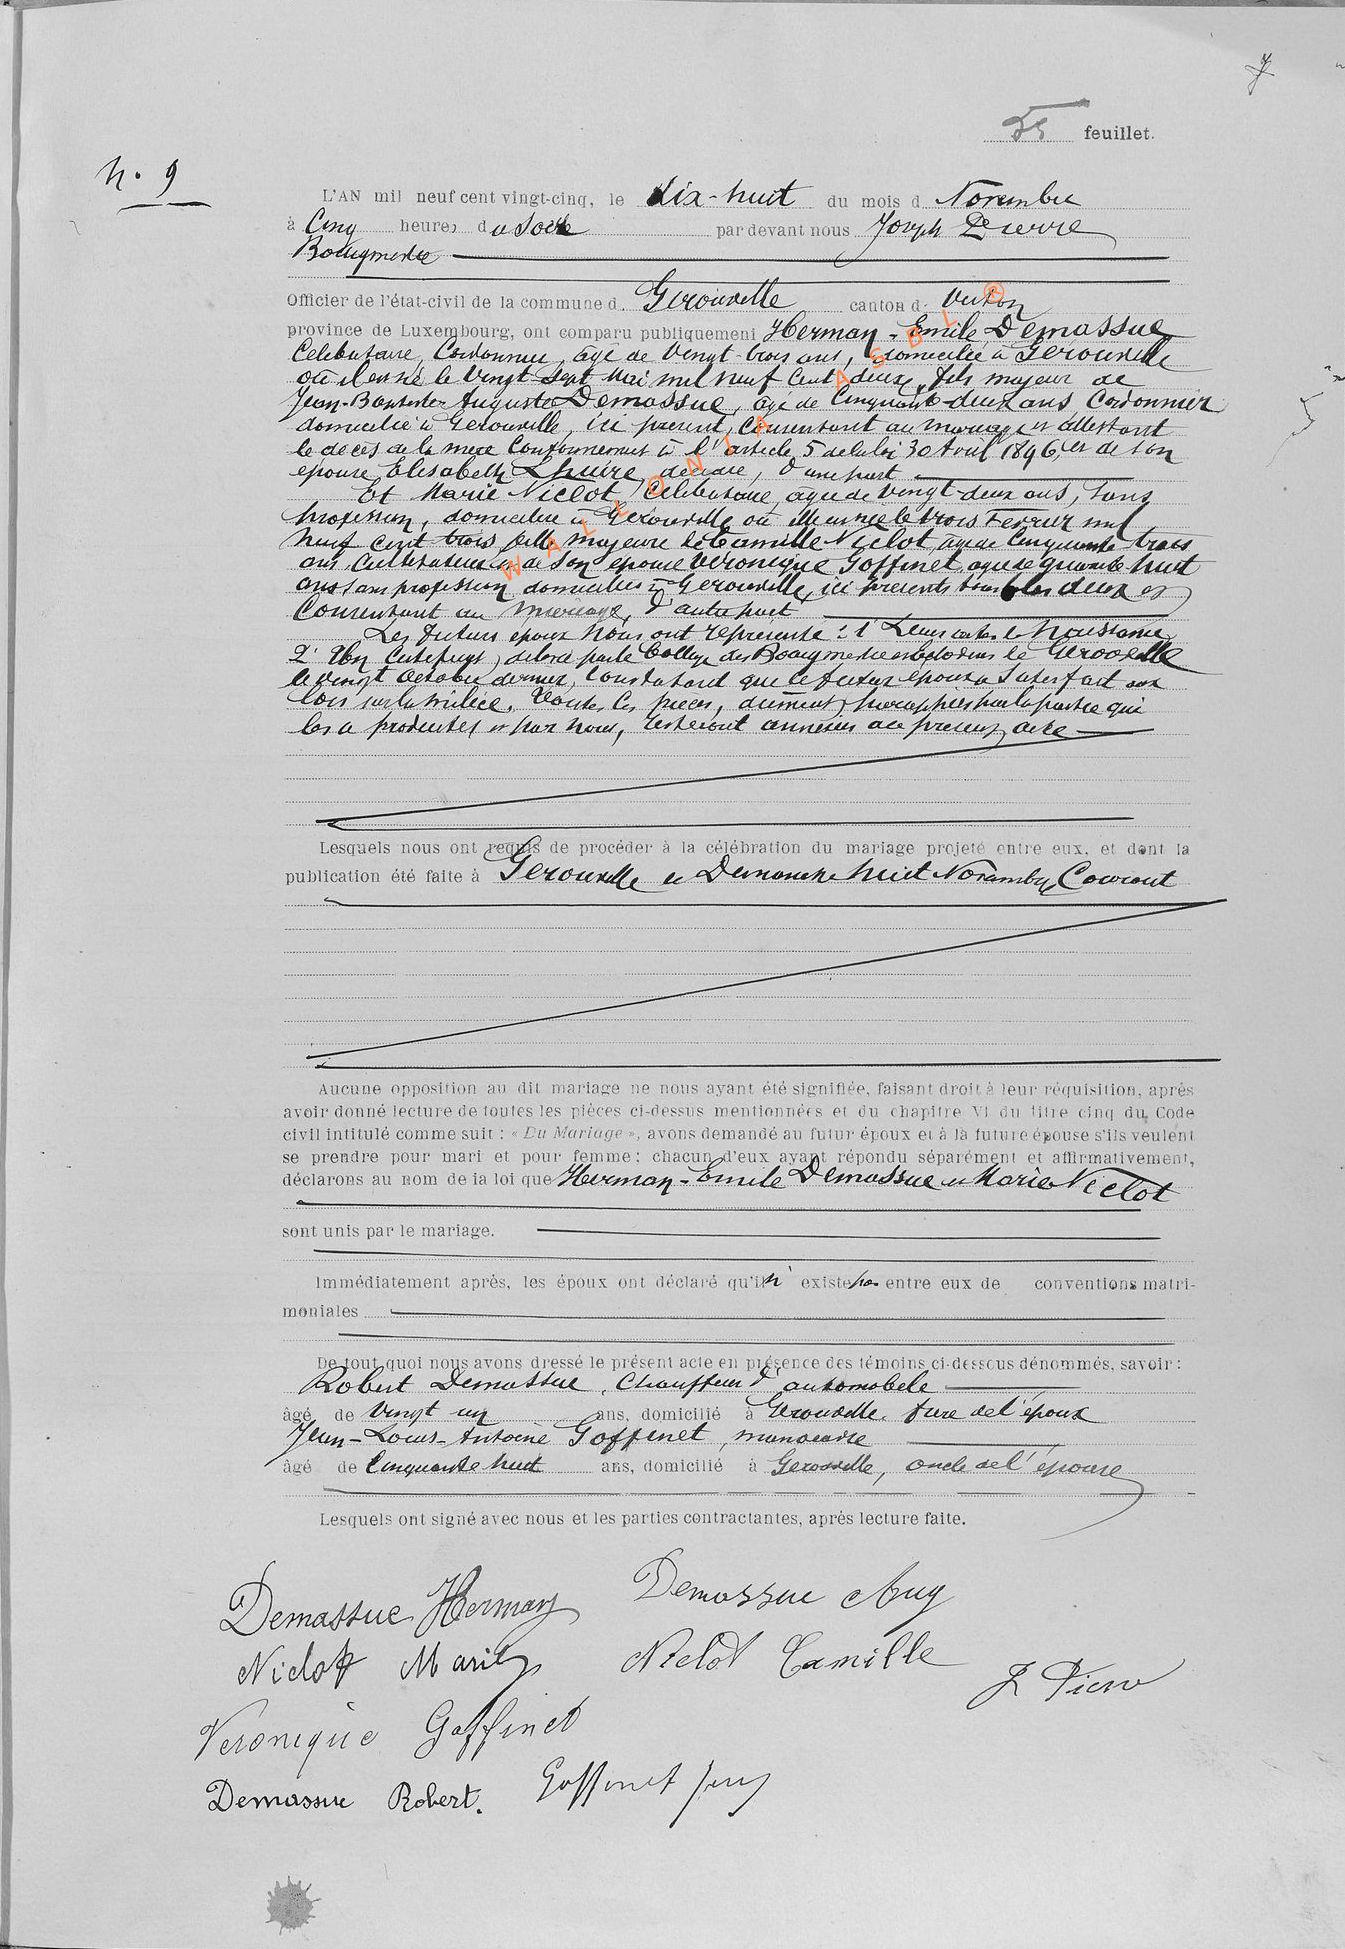 7
55 feuillet.
N. 9
L'AN mil neuf cent vingt-cinq, le dix-huit du mois d Novembre
à Cinq heures du Soir par devant nous Joseph Pierre
Bourgmestre
Officier de l'état-civil de la commune d. Gerouville canton d. Virton
province de Luxembourg, ont comparu publiquement Herman-Emile Demassue
Célibataire, Cordonnier, âgé de vingt-trois ans, domicilié à Gerouville
où il est né le vingt-sept Mai mil neuf Cent deux, fils majeur de
Jean-Baptiste-Auguste Demassue, âgé de Cinquante-deux ans Cordonnier
domicilié à Gerouville, ici présent, Consentant au mariage et attestant
le décès de la mère Conformément à l'article 5 de la loi 30 Avril 1896, et de son
épouse Elisabeth Lhuire, décédée, d'une part
Et Marie Niclot, Célibataire, âgée de vingt-deux ans, Sans
profession, domiciliée à Gerouville où elle est née le trois Fevrier mil
neuf cent trois fille majeure de Camille Niclot, âgé de Cinquante trois
ans, Cultivateur et de son épouse Véronique Goffinet, âgée de quarante huit
ans sans profession domiciliés à Gerouville, ici présents tous les deux et
Consentant au mariage, d'autre part
Les futurs époux Nous ont représenté : 1° Leurs actes de Naissance
2° Un Certificat, délivré par le Collège des Bourgmestre et Echevins de Gerouville
le vingt octobre dernier, Constatant que le futur époux a Satisfait aux
lois sur la milice. Toutes ces pièces, dûment paraphées par la partie qui
les a produites et par nous, resteront annexées au présent acte
Lesquels nous ont requis de procéder à la célébration du mariage projeté entre eux, et dont la
publication été faite à Gerouville le Dimanche huit Novembre Courant
Aucune opposition au dit mariage ne nous ayant été signifiée, faisant droit à leur réquisition, après
avoir donné lecture de toutes les pièces ci-dessus mentionnées et du chapitre VI du titre cinq du Code
civil intitulé comme suit : « Du Mariage », avons demandé au futur époux et à la future épouse s'ils veulent
se prendre pour mari et pour femme ; chacun d'eux ayant répondu séparément et affirmativement,
déclarons au nom de la loi que Herman-Emile Demassue et Marie Niclot
sont unis par le mariage.
Immédiatement après, les époux ont déclaré qu'il n'existe pas entre eux de conventions matri-
moniales
De tout quoi nous avons dressé le présent acte en présence des témoins ci-dessous dénommés, savoir :
Robert Demassue, Chauffeur d'automobile
âgé de vingt un ans, domicilié à Gerouville, frère de l'époux
Jean-Louis-Antoine Goffinet, manoeuvre
âgé de Cinquante huit ans, domicilié à Gerouville, oncle de l'épouse
Lesquels ont signé avec nous et les parties contractantes, après lecture faite.
Demassue Herman Demassue Aug
Niclot Marie Niclot Camille J Pierre
Veronique Goffinet
Demassue Robert. Goffinet
WALLONIA ASBL ®